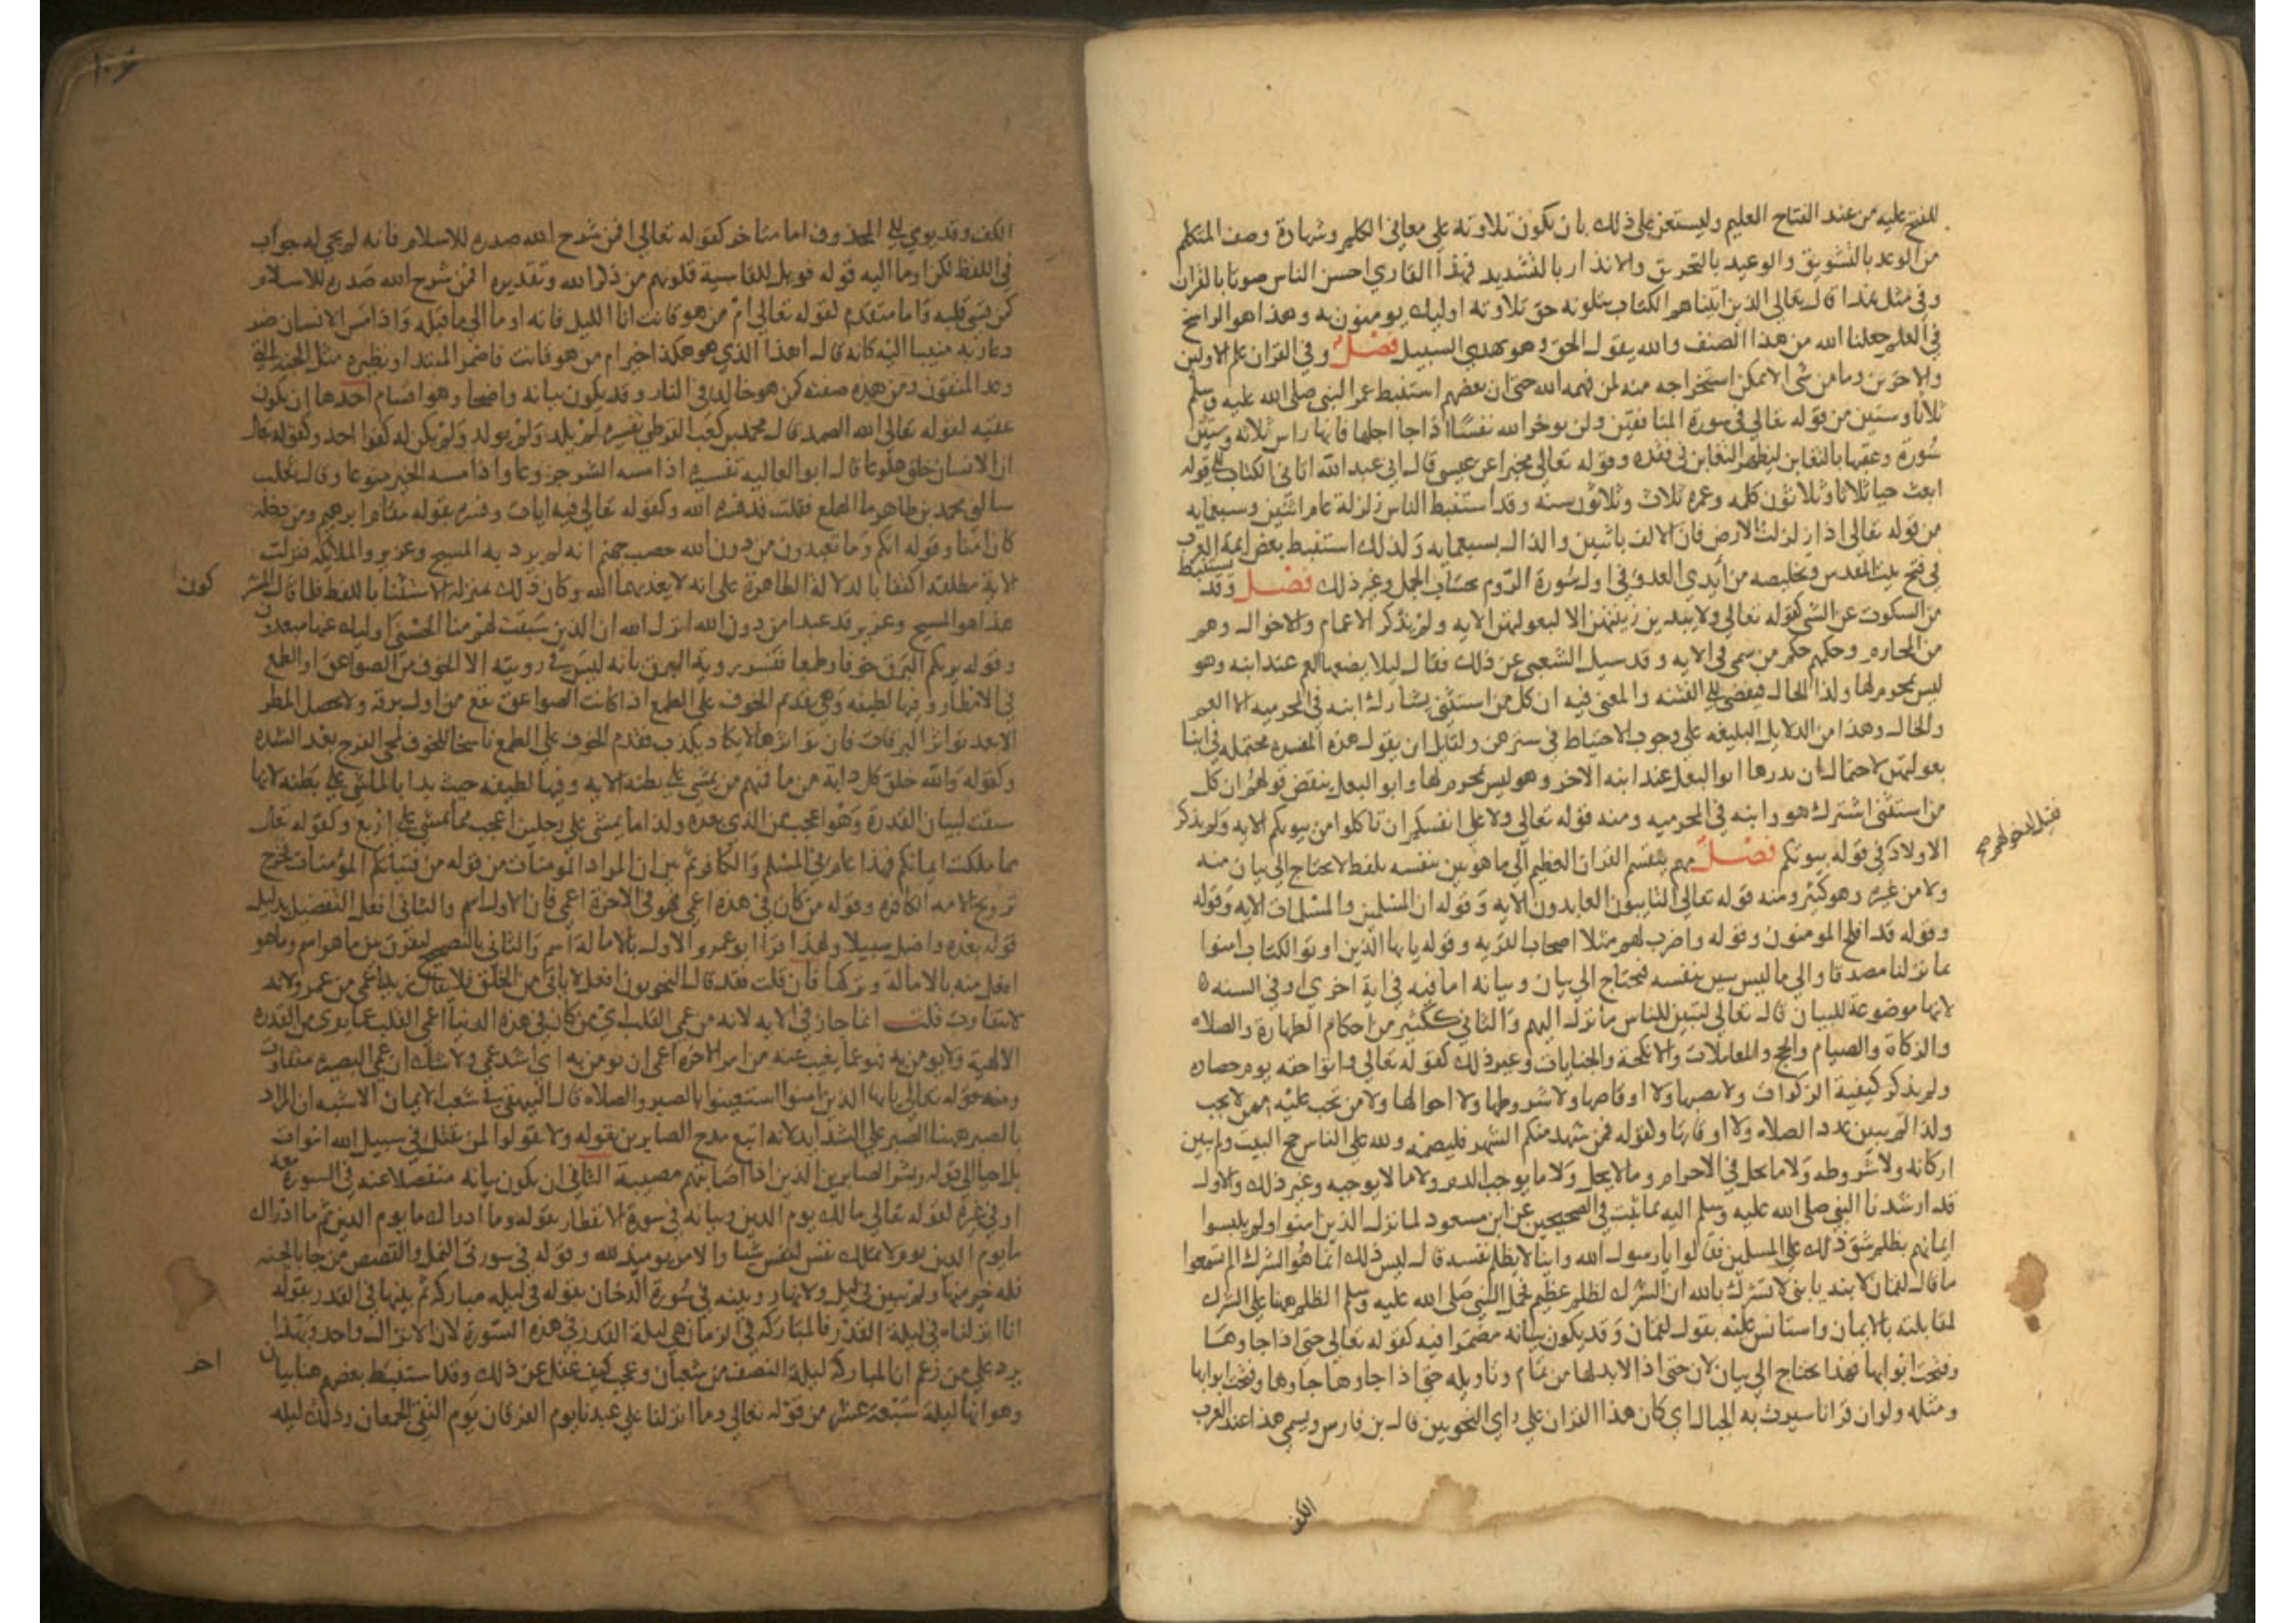 للفتح عليه من عند الفتاح العليم وليستعن على ذلك بان يكون تلاوته على معاني الكلم وشهادة وصف المتكلم
من الوعد بالتشويق والوعيد بالتحريق والانذار بالتشديد فهذا القاري احسن الناس صوتا بالقران
وفي مثل هذا قال تعالى الذين اتيناهم الكتاب يتلونه حق تلاوته اوليك يومنون به وهذا هو الراسخ
في العلم جعلنا الله من هذا الصنف والله يقول الحق وهو يهدي السبيل فصل وفي القران علم الاولين
والاخرين وما من شي الا يمكن استخراجه منه لمن فهمه الله حتى ان بعضهم استنبط عمر النبي صلى الله عليه وسلم
ثلاثا وستين من قوله تعالى في سورة المنافقين ولن يوخر الله نفسا اذا جا اجلها فانها راس ثلاثه وستين
سورة وعقبها بالتغابن ليظهر التغابن في فقده وقوله تعالى مخبرا عن عيسى قال اني عبد الله اتاني الكتاب الى قوله
ابعث حيا ثلاثا وثلاثون كلمه وعمره ثلاث وثلاثون سنه وقد استنبط الناس زلزلة عام اثنين وسبعمايه
من قوله تعالى اذا زلزلت الارض فان الالف باثنين والذال بسبعمايه وكذلك استنبط بعض ايمة العرب
في فتح بيت المقدس وتخليصه من ايدي العدو في اول سورة الروم بحساب الجمل وغير ذلك فصل وقد يستنبط
من السكوت عن الشي كقوله تعالى ولا يبدين زينتهن الا لبعولتهن الايه ولم يذكر الاعمام والاخوال وهم
من المحارم وحكمهم حكم من سمى في الايه وقد سيل الشعبي عن ذلك فقال ليلا يضعها العم عند ابنه وهو
ليس بمحرم لها وكذا الخال فيفضي الى الفتنه والمعنى فيه ان كل من استثني يشارك ابنه في المحرميه الا العم
والخال وهذا من الدلايل البليغه على وجوب الاحتياط في سترهن ولقايل ان يقول هذه المفسده محتمله في ابنا
بعولتهن لاحتمال ان يذرها ابو البعل عند ابنه الاخر وهو ليس بمحرم لها وابو البعل ينقض قولهم ان كل
من استثنى اشترك هو وابنه في المحرميه ومنه قوله تعالى ولا على انفسكم ان تاكلوا من بيوتكم الايه ولم يذكر
الاولاد في قوله بيوتكم فصل ينقسم القران العظيم الى ما هو بين بنفسه بلفظ لا يحتاج الى بيان منه
ولا من غيره وهو كثير ومنه قوله تعالى التايبون العابدون الايه وقوله ان المسلمين والمسلمات الايه وقوله
وقوله قد افلح المومنون وقوله واضرب لهم مثلا اصحاب القريه وقوله يايها الذين اوتوا الكتاب امنوا
بما نزلنا مصدقا والى ما ليس ببين بنفسه فيحتاج الى بيان وبيانه اما فيه في اية اخرى او في السنه
لانها موضوعة للبيان قال تعالى لتبين للناس ما نزل اليهم والثاني ككثير من احكام الطهارة والصلاه
والزكاة والصيام والحج والمعاملات والانكحة والجنايات وغير ذلك كقوله تعالى واتوا حقه يوم حصاده
ولم يذكر كيفية الزكوات ولا نصبها ولا اوقاصها ولا شروطها ولا احوالها ولا من تجب عليه ممن لا تجب
وكذا لم يبين عدد الصلاه ولا اوقاتها وكقوله فمن شهد منكم الشهر فليصمه ولله على الناس حج البيت ولم يبين
اركانه ولا شروطه ولا ما يحل في الاحرام وما لا يحل ولا ما يوجب الدم ولا ما لا يوجبه وغير ذلك والاول
قد ارشدنا النبي صلى الله عليه وسلم اليه بما ثبت في الصحيحين عن ابن مسعود لما نزل الذين امنوا ولم يلبسوا
ايمانهم بظلم شق ذلك على المسلمين فقالوا يا رسول الله واينا لا يظلم نفسه قال ليس ذلك انما هو الشرك الم تسمعوا
ما قال لقمان لابنه يا بني لا تشرك بالله ان الشرك لظلم عظيم فحمل النبي صلى الله عليه وسلم الظلم ههنا على الشرك
لمقابلته بالايمان واستانس عليه بقول لقمان وقد يكون بيانه مضمرا فيه كقوله تعالى حتى اذا جاوها
وفتحت ابوابها فهذا يحتاج الى بيان لان حتى اذا لا بد لها من تمام وتاويله حتى اذا جاوها جاوها وفتحت ابوابها
ومثله ولو ان قرانا سيرت به الجبال اي كان هذا القران على راي النحويين قال بن فارس ويسمى هذا عند العرب
الكف
الكف وقد يومي الى المحذوف اما متاخر كقوله تعالى افمن شرح الله صدره للاسلام فانه لم يجي له جواب
في اللفظ لكن اوما اليه قوله فويل للقاسية قلوبهم من ذكر الله وتقديره افمن شرح الله صدره للاسلام
كمن قسى قلبه واما متقدم لقوله تعالى ام من هو قانت انا الليل فانه اوما الى ما قبله واذا مس الانسان ضر
دعا ربه منيبا اليه كانه قال اهذا الذي هو هكذا خير ام من هو قانت فاضمر المبتدا ونظيره مثل الجنة التي
وعد المتقون ومن هذه صفته كمن هو خالد في النار وقد يكون بيانه واضحا وهو اقسام احدها ان يكون
عقبه لقوله تعالى الله الصمد قال محمد بن كعب القرظي تفسيره لم يلد ولم يولد ولم يكن له كفوا احد وكقوله تعالى
ان الانسان خلق هلوعا قال ابو العاليه تفسيره اذا مسه الشر جزوعا واذا مسه الخير منوعا وقال ثعلب
سالني محمد بن طاهر ما الهلع فقلت قد فسره الله وكقوله تعالى فيه ايات وفسره بقوله مقام ابرهيم ومن دخله
كان امنا وقوله انكم وما تعبدون من دون الله حصب جهنم انه لم يرد به المسيح وعزير والملايكه فنزلت
الاية مطلقه اكتفا بالدلالة الظاهرة على انه لا يعذبهما الله وكان ذلك بمنزلة الاستثنا باللفظ فلما قال المشركون
هذا هو المسيح وعزير قد عبدا من دون الله انزل الله ان الذين سبقت لهم منا الحسنى اوليك عنها مبعدون
وقوله يريكم البرق خوفا وطمعا فتفسير روية البرق بانه ليس في رويته الا الخوف من الصواعق او الطمع
في الامطار وفيها لطيفه وهي تقديم الخوف على الطمع اذ كانت الصواعق تقع من اول برقة ولا يحصل المطر
الا بعد تواتر البرقات فان تواترها لا يكاد يكذب فقدم الخوف على الطمع ناسخا للخوف لمجي الفرج بعد الشده
وكقوله والله خلق كل دابة من ما فمنهم من يمشي على بطنه الايه وفيها لطيفه حيث بدا بالماشي على بطنه لانها
سيقت لبيان القدرة وهو اعجب من الذي بعده وكذا ما يمشي على رجلين اعجب مما يمشي على اربع وكقوله تعالى
مما ملكت ايمانكم فهذا عام في المسلم والكافر ثم بين ان المراد المومنات من قوله من فتياتكم المؤمنات فخرج
تزويج الامه الكافره وقوله من كان في هذه اعمى فهو في الاخرة اعمى فان الاول اسم والثاني افعل التفضيل بدليل
قوله بعده واضل سبيلا ولهذا قرا ابو عمرو الاول بالامالة اسم والثاني بالتصحيح ليفرق بين ما هو اسم وما هو
افعل منه بالامالة وتركها فان قلت فقد قال النحويون افعل لا ياتي من الخلق فلا يقال زيد اعمى من عمر ولانه
لا تتفاوت قلت انما جاز في الايه لانه من عمى القلب اي من كان في هذه الدنيا اعمى القلب عما يرى من القدرة
الالهية ولا يومن به فهو عما يغيب عنه من امر الاخرة اعمى ان يومن به اي اشد عمى ولا شك ان عمى البصيره متفاوت
ومنه قوله تعالى يايها الذين امنوا استعينوا بالصبر والصلاه قال البيهقي في شعب الايمان الاشبه ان المراد
بالصبر ههنا الصبر على الشدايد لانه اتبع مدح الصابرين بقوله ولا تقولوا لمن يقتل في سبيل الله اموات
بل احيا الى قوله وبشر الصابرين الذين اذا اصابتهم مصيبة الثاني ان يكون بيانه منفصلا عنه في السورة معه
او في غيره لقوله تعالى مالك يوم الدين وبيانه في سورة الانفطار بقوله وما ادراك ما يوم الدين ثم ما ادراك
ما يوم الدين يوم لا تملك نفس لنفس شيا والامر يوميذ لله وقوله في سورتي النمل والقصص من جا بالحسنه
فله خير منها ولم يبين في ليل ولا نهار وبينه في سورة الدخان بقوله في ليله مباركه ثم بينها في القدر بقوله
انا انزلناه في ليلة القدر فالمباركه في الزمان هي ليلة القدر في هذه السورة لان الانزال واحد وبهذا
يرد على من زعم ان المباركه ليلة النصف من شعبان وعجب كيف غفل عن ذلك وقد استنبط بعضهم هنا بيان اخر
وهو انها ليلة سبعة عشر من قوله تعالى وما انزلنا على عبدنا يوم الفرقان يوم التقى الجمعان وذلك ليله